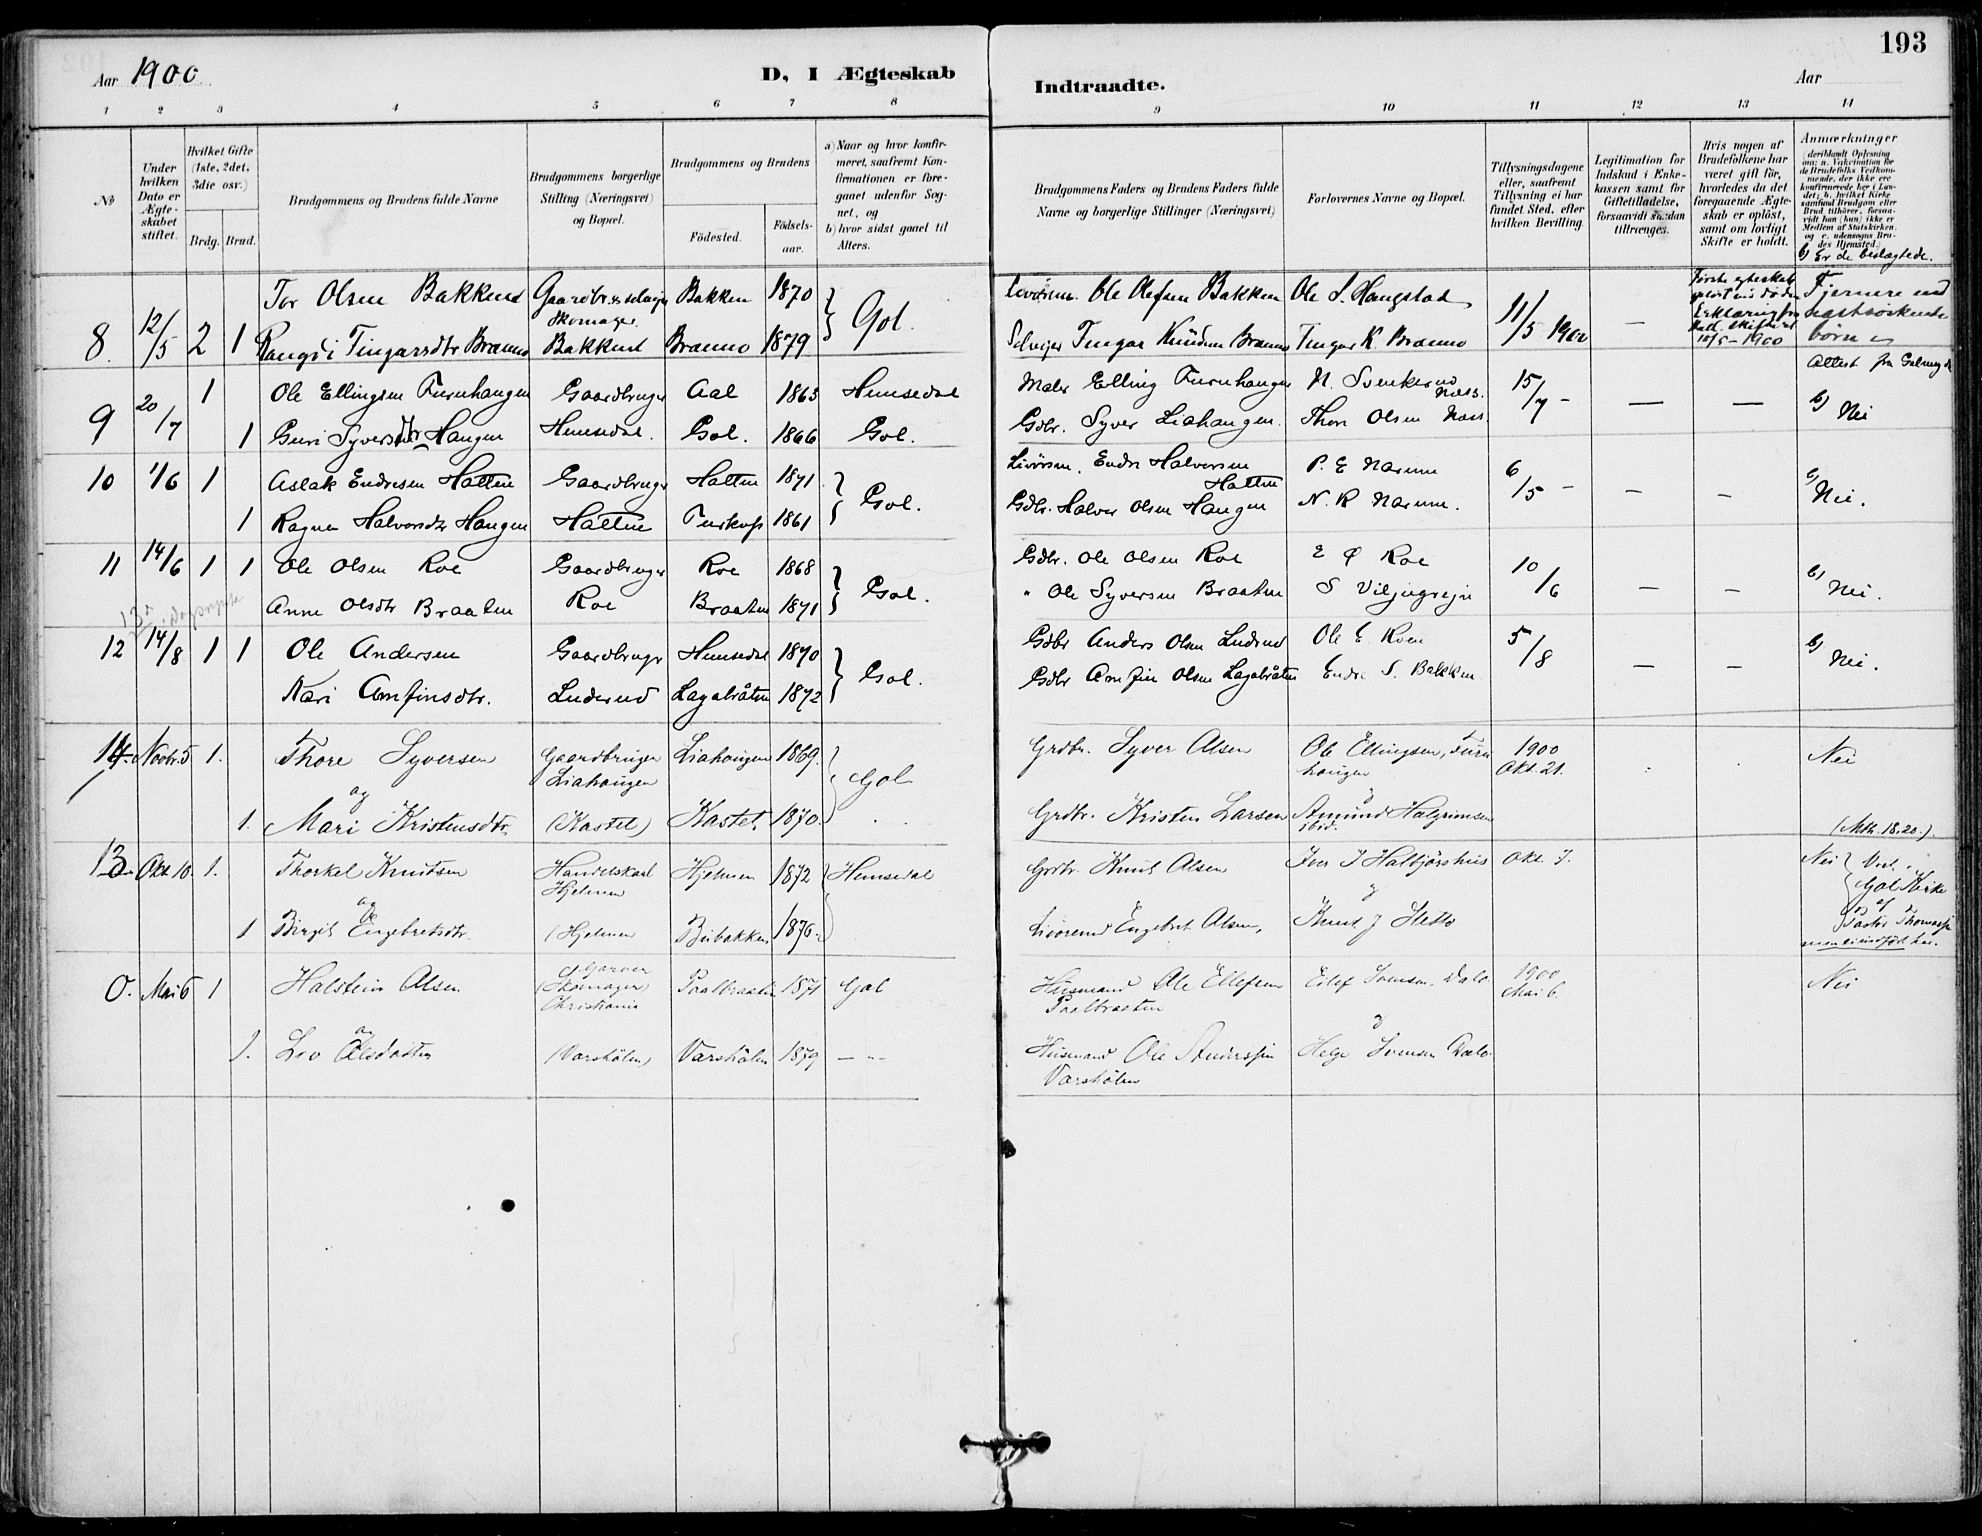 193
Aar 1900
D, I Ægteskab
Indtraadte.
Aar
1 2 3 4 5 6 7 8 9 10 11 12 13 14
No
Under hvilken Dato er Ægteskabet stiftet.
Hvilket Gifte (1ste, 2det, 3die osv.)
Brdg. Brud.
Brudgommens og Brudens fulde Navne
Brudgommens borgerlige Stilling (Næringsvei) og Bopæl.
Brudgommens og Brudens
Fødested.
Fødselsaar.
a) Naar og hvor konfirmeret, saafremt Konfirmationen er foregaaet udenfor Sognet, og
b) hvor sidst gaaet til Alters.
Brudgommens Faders og Brudens Faders fulde Navne og borgerlige Stillinger (Næringsvei)
Forlovernes Navne og Bopæl.
Tillysningsdagene eller, saafremt Tillysning ei har fundet Sted, efter hvilken Bevilling.
Legitimation for Indskud i Enkekassen samt for Giftetilladelse, forsaavidt saadan tiltrænges.
Hvis nogen af Brudefolkene har været gift før, hvorledes da det foregaaende Ægteskab er opløst, samt om lovligt Skifte er holdt.
Anmærkninger
deriblandt Oplysning om: a. Vakcination for de Brudefolks Vedkommende, der ikke ere konfirmerede her i Landet; b. hvilket Kirkesamfund Brudgom eller Brud tilhører, forsaavidt han (hun) ikke er Medlem af Statskirken, og c. udensogns Brudes Hjemsted.)
b) Er de beslægtede.
8. 12/5 2 Tor Olsen Bakkene Gaardbr. Skomager. Bakken 1870 Gol. Ole Olefsen Bakken Ole S. Haugstad 11/5 1900 — Første egteskab opløst ved døden Fjernere end
1 Rangdi Tingarsdtr Brænno Bakkene Brænno 1879 Selveier Tingar Knudsen Brænno Tingar K. Brænno 12/5 - 1900 børn
Attest fra
9 20/7 1 Ole Ellingsen Furuhaugen Gaardbruger Aal 1863 Hemsedal Maler Elling Furuhaugen N. Svenkerud Næss. 15/7 - — — b) Nei
1 Guri Syversdtr Haugen Hemsedal. Gol. 1866 Gol. Gdbr. Syver Liahaugen. Thor Olsen Næss
10 1/6 1 Aslak Endresen Hatten Gaardbruger Hatten 1871 Gol. Endre Halvorsen Hatten P. E Narum 6/5 - — — b) Nei.
1 Ragne Halvorsdtr Haugen Hatten 1861 Gdbr. Halvor Olsen Haugen N. R Narum.
11 14/6 1 1 Ole Olsen Roe Gaardbruger Roe 1868 Gol. Gdbr. Ole Olsen Roe E O Roe 10/6 — — b) Nei.
Anne Olsdtr Braaten Roe Braaten 1871 " Ole Syversen Braaten S
12 14/8 1 1 Ole Andersen Gaardbruger Hemsedal 1870 Gol. Gdbr Anders Olsen Luderud Ole E Roen 5/8 — — b) Nei.
Kari Arnfinsdtr. Luderud Lagabråten 1872 Gdbr Arnfin Olsen Lagabråten Endre S. Bakken
14 Novbr. 5 1. Thore Syversen Gaardbruger Liahaugen Liahaugen 1869. Gol Grdbr. Syver Olsen Ole Ellingsen, Furuhaugen 1900 Okt. 21. Nei
og og
1. Mari Kristensdtr. (Kastet) Kastet 1870. Grdbr. Kristen Larsen Amund Halgrimsen ibid. (Mth. 18.20.).
13 Okt. 10. 1. Thorkel Knutsen Handelskarl Hjelmen Hjelmen 1872 Hemsedal Grdbr. Knut Olsen Iver I Halbjørshus Okt. 7. Nei Viet i Gol Kirke af Pastor
og og
1 Birgit Engebretsdtr. (Hjelmen 1876. Engebret Olsen, Knut J
0. Mai 6 1 Halstein Olsen Garver (Skomager) Christiania Paalbraaten 1871 Gol Husmand Ole Ellefsen Paalbraaten Eilef Svensen, Dalo 1900 Mai 6. Nei
og og
1. Liv Olsdatter (Varshølen) Varshølen 1879 — " — Husmand Ole Andersen Varshølen Helge Svensen Dalo